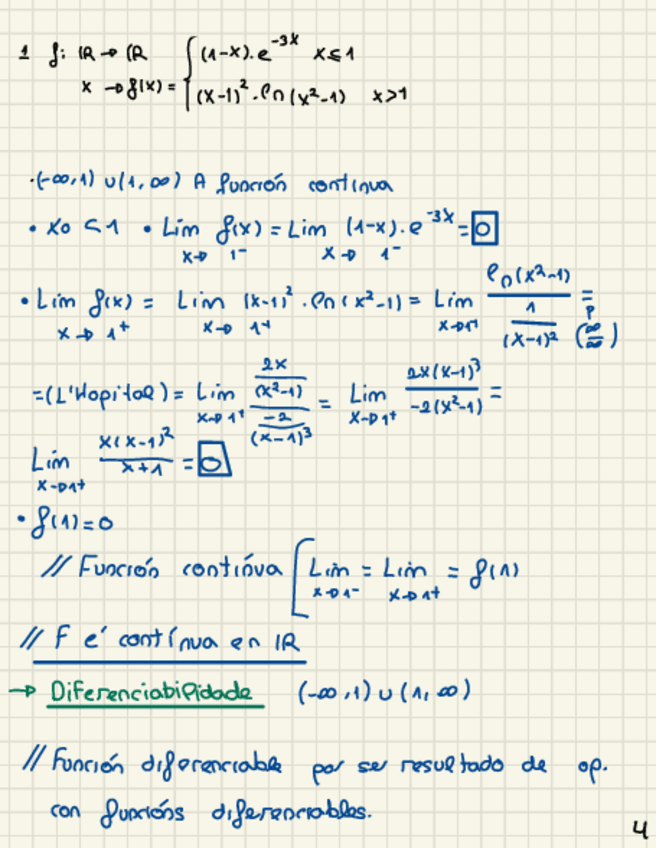 1 f: IR → IR { (1-x).e^{-3x} x≤1
x → f(x) = { (x-1)^2 . ln(x^2-1) x>1
·(-∞,1) ∪ (1,∞) A función continua
• x0 ≤ 1 • Lim_{x→1^-} f(x) = Lim_{x→1^-} (1-x).e^{-3x} = 0
• Lim_{x→1^+} f(x) = Lim_{x→1^+} (x-1)^2 . ln(x^2-1) = Lim_{x→1^+} ln(x^2-1) / (1/(x-1)^2) = (∞/∞)
=(L'Hopital) = Lim_{x→1^+} (2x/(x^2-1)) / (-2/(x-1)^3) = Lim_{x→1^+} 2x(x-1)^3 / -2(x^2-1) =
Lim_{x→1^+} x(x-1)^2 / x+1 = 0
• f(1)=0
// Función contínua [ Lim_{x→1^-} = Lim_{x→1^+} = f(1)
// F é contínua en IR
→ Diferenciabilidade (-∞,1) ∪ (1,∞)
// Función diferenciable por ser resultado de op.
con funcións diferenciables.
4